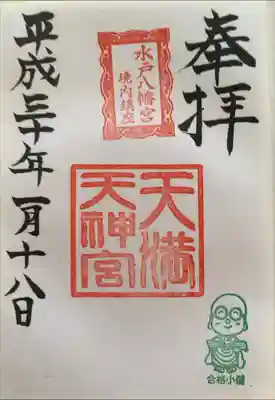 奉拝
水戸八幡宮
境内鎮座
天満
天神宮
平成三十年一月十八日
合格小僧